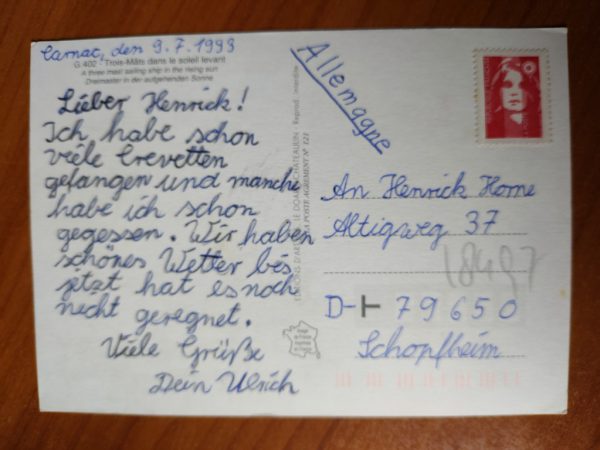 Carnac, den 9.7.1993
G.402 - Trois-Mâts dans le soleil levant
A three mast sailing ship in the rising sun
Dreimaster in der aufgehenden Sonne
Lieber Henrick!
Ich habe schon
viele Crevetten
gefangen und manche
habe ich schon
gegessen. Wir haben
schönes Wetter bis
jetzt hat es noch
nicht geregnet.
Viele Grüße
Dein Ulrich
Reprod. interdite
Allemagne
An Henrick Horne
Altigweg 37
18497
D-T 79650
Schopfheim